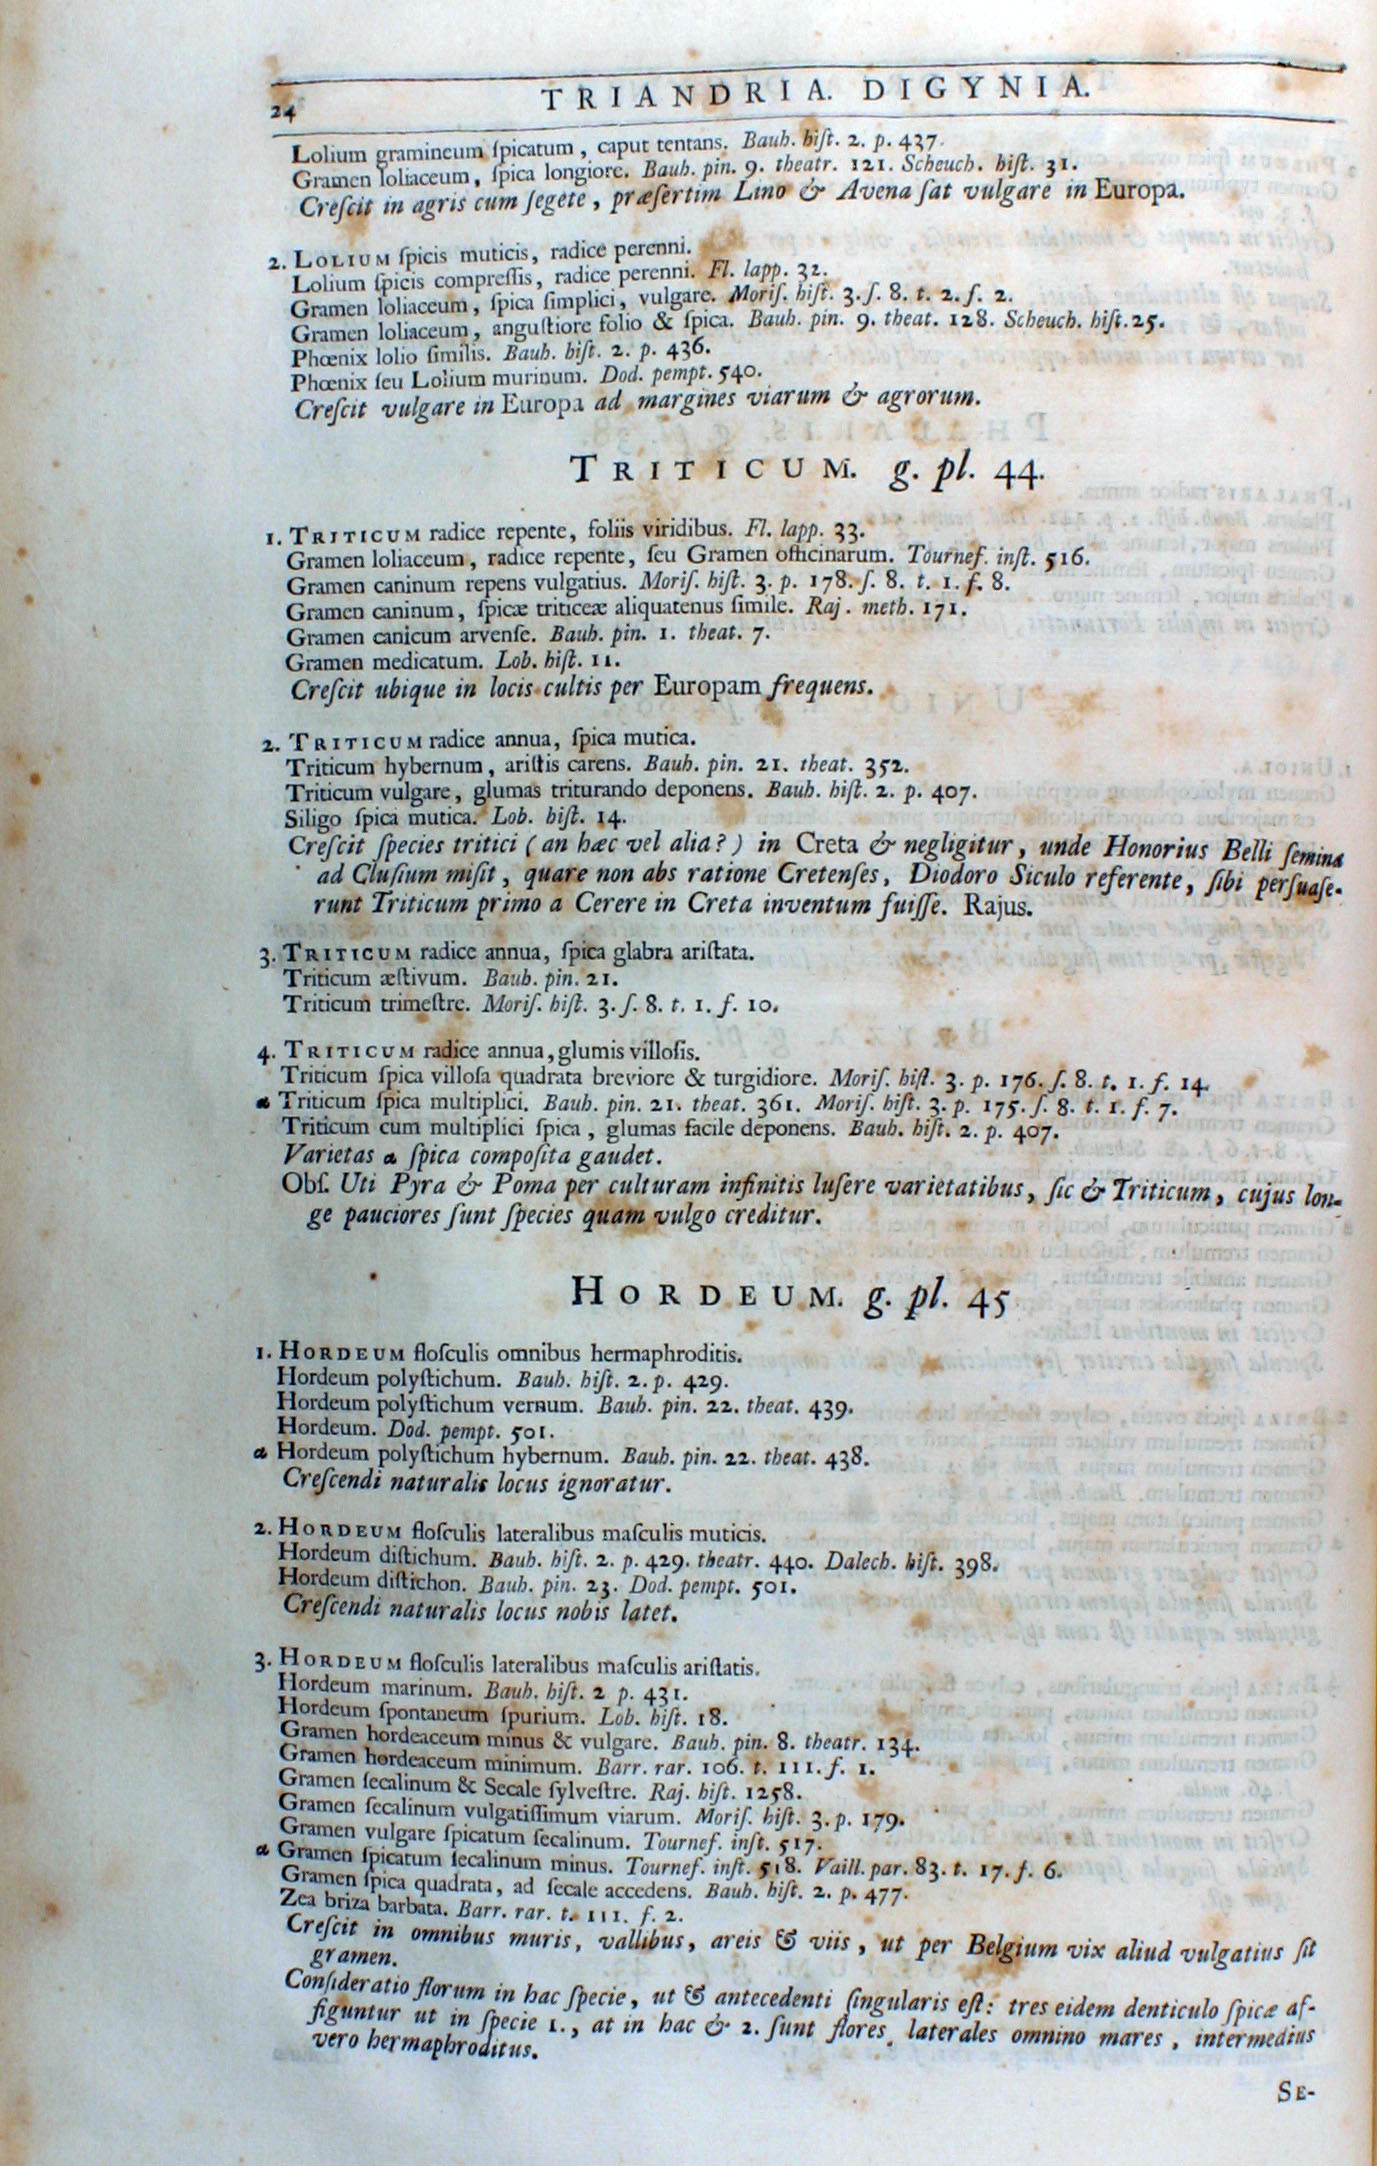 24 TRIANDRIA. DIGYNIA.
Lolium gramineum ſpicatum, caput tentans. Bauh. hiſt. 2. p. 437.
Gramen loliaceum, ſpica longiore. Bauh. pin. 9. theatr. 121. Scheuch. hiſt. 31.
Creſcit in agris cum ſegete, præſertim Lino & Avena ſat vulgare in Europa.
2. LOLIUM ſpicis muticis, radice perenni.
Lolium ſpicis compreſſis, radice perenni. Fl. lapp. 32.
Gramen loliaceum, ſpica ſimplici, vulgare. Moriſ. hiſt. 3. ſ. 8. t. 2. f. 2.
Gramen loliaceum, anguſtiore folio & ſpica. Bauh. pin. 9. theat. 128. Scheuch. hiſt. 25.
Phœnix lolio ſimilis. Bauh. hiſt. 2. p. 436.
Phœnix ſeu Lolium murinum. Dod. pempt. 540.
Creſcit vulgare in Europa ad margines viarum & agrorum.
TRITICUM. g. pl. 44.
1. TRITICUM radice repente, foliis viridibus. Fl. lapp. 33.
Gramen loliaceum, radice repente, ſeu Gramen officinarum. Tournef. inſt. 516.
Gramen caninum repens vulgatius. Moriſ. hiſt. 3. p. 178. ſ. 8. t. 1. f. 8.
Gramen caninum, ſpicæ triticeæ aliquatenus ſimile. Raj. meth. 171.
Gramen canicum arvenſe. Bauh. pin. 1. theat. 7.
Gramen medicatum. Lob. hiſt. 11.
Creſcit ubique in locis cultis per Europam frequens.
2. TRITICUM radice annua, ſpica mutica.
Triticum hybernum, ariſtis carens. Bauh. pin. 21. theat. 352.
Triticum vulgare, glumas triturando deponens. Bauh. hiſt. 2. p. 407.
Siligo ſpica mutica. Lob. hiſt. 14.
Creſcit ſpecies tritici (an hæc vel alia?) in Creta & negligitur, unde Honorius Belli ſemina
ad Cluſium miſit, quare non abs ratione Cretenſes, Diodoro Siculo referente, ſibi perſuaſe-
runt Triticum primo a Cerere in Creta inventum fuiſſe. Rajus.
3. TRITICUM radice annua, ſpica glabra ariſtata.
Triticum æſtivum. Bauh. pin. 21.
Triticum trimeſtre. Moriſ. hiſt. 3. ſ. 8. t. 1. f. 10.
4. TRITICUM radice annua, glumis villoſis.
Triticum ſpica villoſa quadrata breviore & turgidiore. Moriſ. hiſt. 3. p. 176. ſ. 8. t. 1. f. 14.
α Triticum ſpica multiplici. Bauh. pin. 21. theat. 361. Moriſ. hiſt. 3. p. 175. ſ. 8. t. 1. f. 7.
Triticum cum multiplici ſpica, glumas facile deponens. Bauh. hiſt. 2. p. 407.
Varietas α ſpica compoſita gaudet.
Obſ. Uti Pyra & Poma per culturam infinitis luſere varietatibus, ſic & Triticum, cujus lon-
ge pauciores ſunt ſpecies quam vulgo creditur.
HORDEUM. g. pl. 45
1. HORDEUM floſculis omnibus hermaphroditis.
Hordeum polyſtichum. Bauh. hiſt. 2. p. 429.
Hordeum polyſtichum vernum. Bauh. pin. 22. theat. 439.
Hordeum. Dod. pempt. 501.
α Hordeum polyſtichum hybernum. Bauh. pin. 22. theat. 438.
Creſcendi naturalis locus ignoratur.
2. HORDEUM floſculis lateralibus maſculis muticis.
Hordeum diſtichum. Bauh. hiſt. 2. p. 429. theatr. 440. Dalech. hiſt. 398.
Hordeum diſtichon. Bauh. pin. 23. Dod. pempt. 501.
Creſcendi naturalis locus nobis latet.
3. HORDEUM floſculis lateralibus maſculis ariſtatis.
Hordeum marinum. Bauh. hiſt. 2 p. 431.
Hordeum ſpontaneum ſpurium. Lob. hiſt. 18.
Gramen hordeaceum minus & vulgare. Bauh. pin. 8. theatr. 134.
Gramen hordeaceum minimum. Barr. rar. 106. t. 111. f. 1.
Gramen ſecalinum & Secale ſylveſtre. Raj. hiſt. 1258.
Gramen ſecalinum vulgatiſſimum viarum. Moriſ. hiſt. 3. p. 179.
Gramen vulgare ſpicatum ſecalinum. Tournef. inſt. 517.
α Gramen ſpicatum ſecalinum minus. Tournef. inſt. 518. Vaill. par. 83. t. 17. f. 6.
Gramen ſpica quadrata, ad ſecale accedens. Bauh. hiſt. 2. p. 477.
Zea briza barbata. Barr. rar. t. 111. f. 2.
Creſcit in omnibus muris, vallibus, areis & viis, ut per Belgium vix aliud vulgatius ſit
gramen.
Conſideratio florum in hac ſpecie, ut & antecedenti ſingularis eſt: tres eidem denticulo ſpicæ af-
figuntur ut in ſpecie 1., at in hac & 2. ſunt flores laterales omnino mares, intermedius
vero hermaphroditus.
SE-